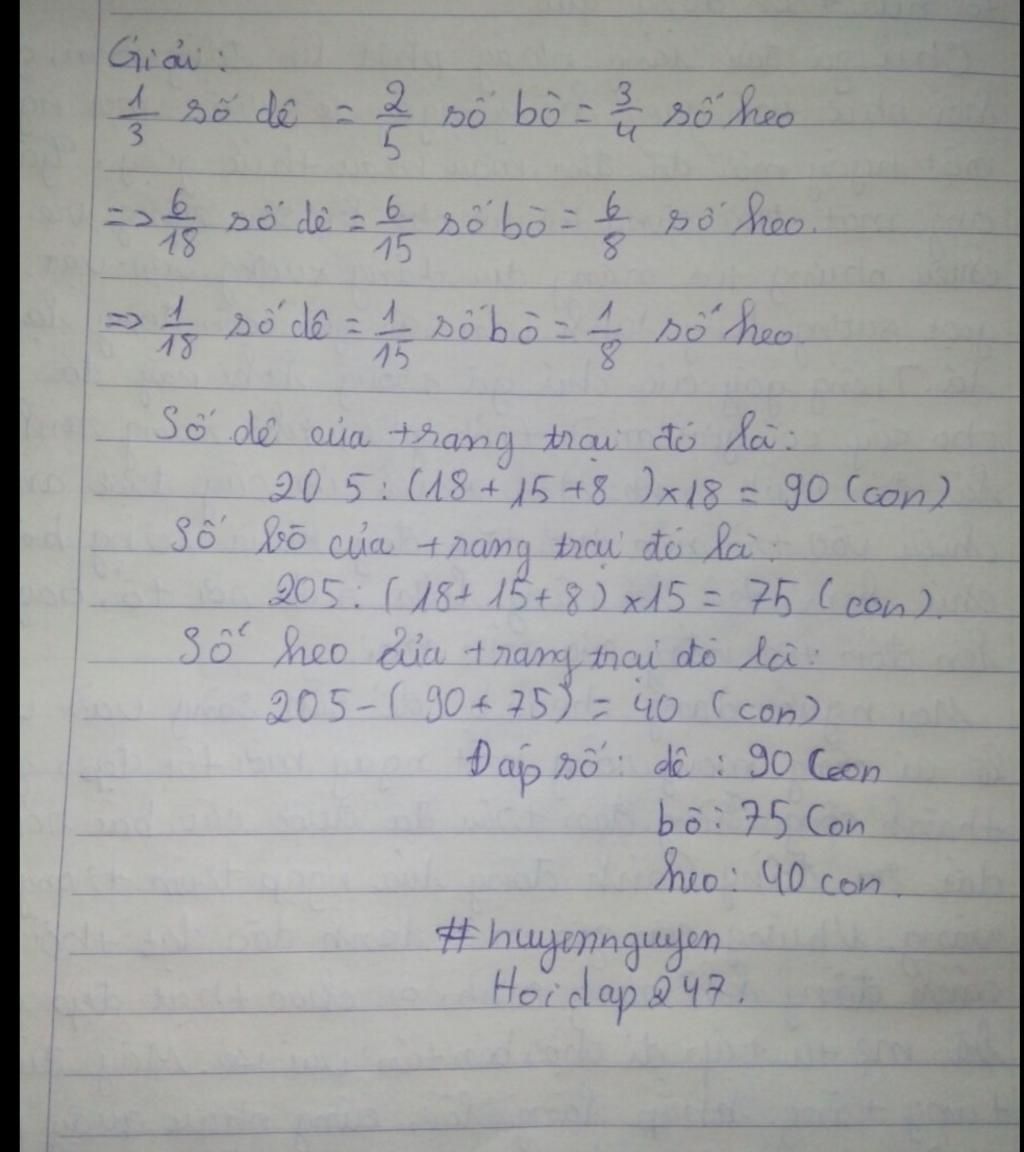 Giải:
1/3 số dê = 2/5 số bò = 3/4 số heo
=> 6/18 số dê = 6/15 số bò = 6/8 số heo.
=> 1/18 số dê = 1/15 số bò = 1/8 số heo.
Số dê của trang trại đó là:
205 : (18 + 15 + 8) × 18 = 90 (con)
Số bò của trang trại đó là:
205 : (18 + 15 + 8) × 15 = 75 (con)
Số heo của trang trại đó là:
205 - (90 + 75) = 40 (con)
Đáp số: dê : 90 con
bò : 75 con
heo : 40 con.
#huyennguyen
Hoidap247.